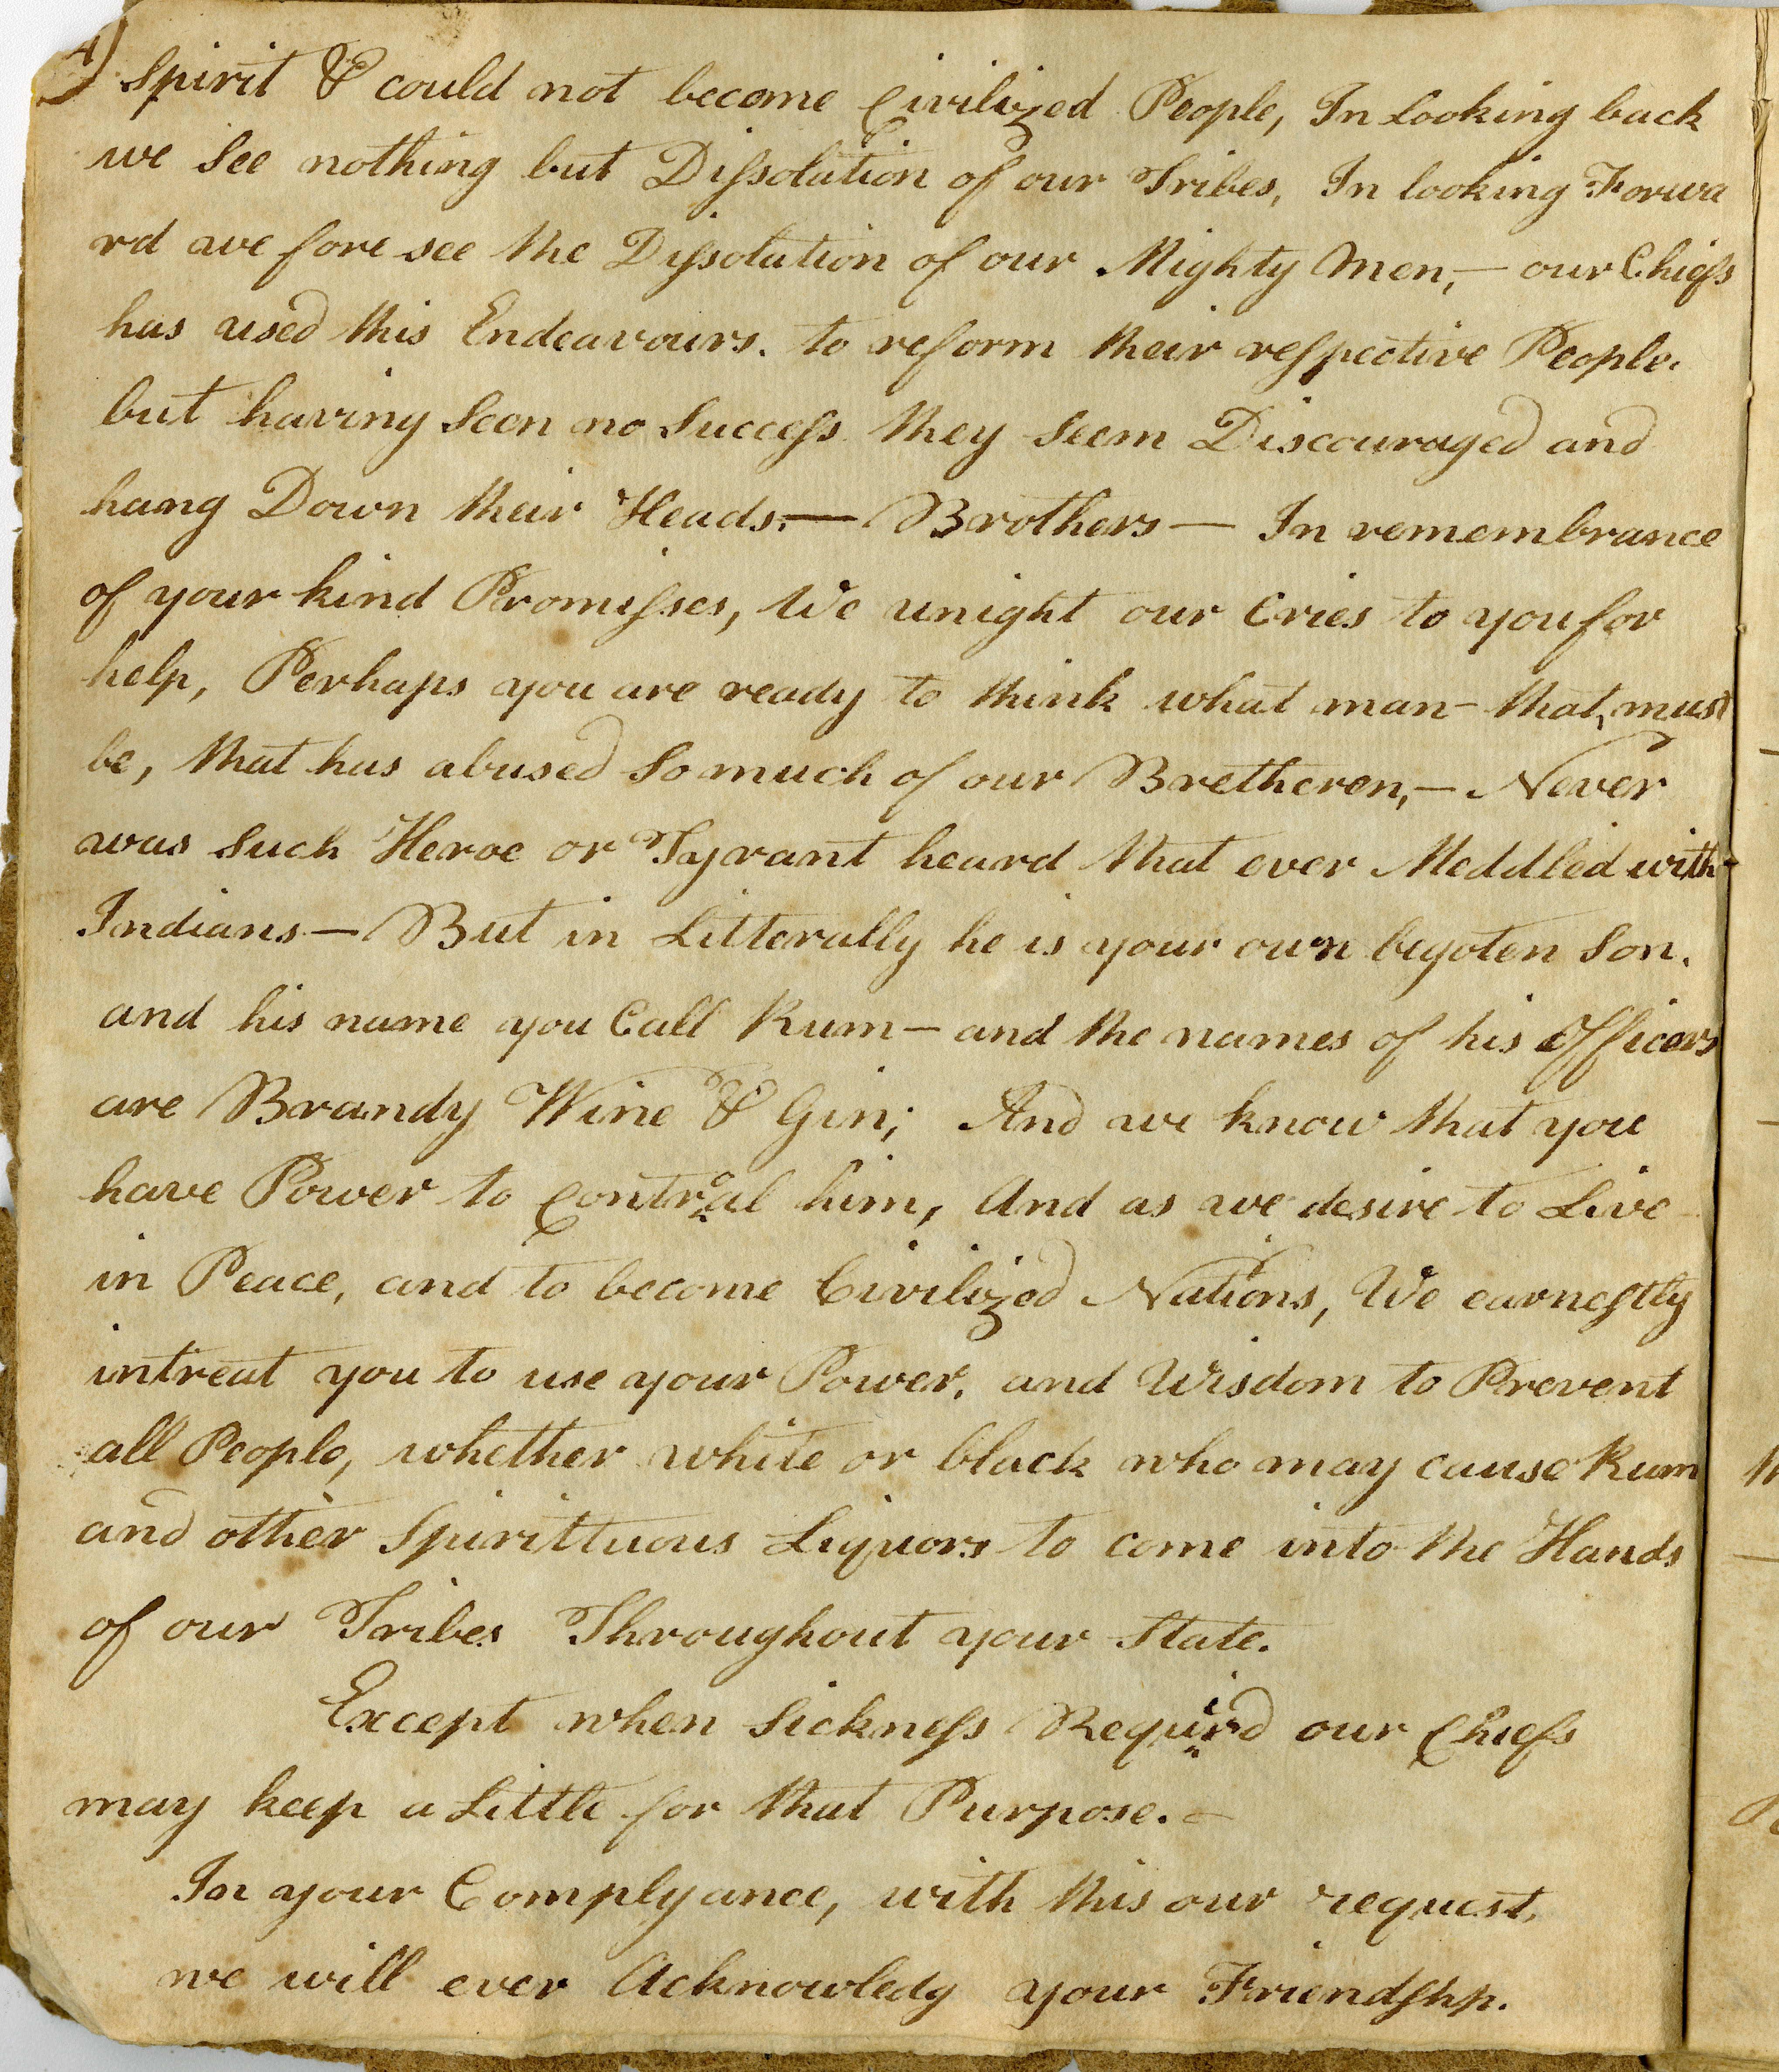 4)
Spirit & could not become Civilized People, In looking back
we See nothing but Dissolution of our Tribes, In looking Forwa
rd we fore see the Dissolution of our Mighty Men,— our Chiefs
has used this Endeavours. to reform their respective People.
but having Seen no Success they Seem Discouraged and
hang Down their Heads.— Brothers — In remembrance
of your kind Promisses, We unight our Cries to you for
help, Perhaps you are ready to think what man- that must
be, that has abused So much of our Bretheren,— Never
was Such Heroe or Tyrant heard that ever Meddled with
Indians — But in Litterally he is your own begoten Son.
and his name you Call Rum — and the names of his Officers
are Brandy Wine & Gin; And we know that you
have Power to Controal him, And as we desire to Live
in Peace, and to become Civilized Nations, We earnestly
intreat you to use your Power, and Wisdom to Prevent
all People, whether white or black who may cause Rum
and other Spirittuous Liquors to come into the Hands
of our Tribes Throughout your State.
Except when Sickness Requird our Chiefs
may keep a Little for that Purpose. —
In your Complyance, with this our request,
we will ever Acknowledg your Friendshp.